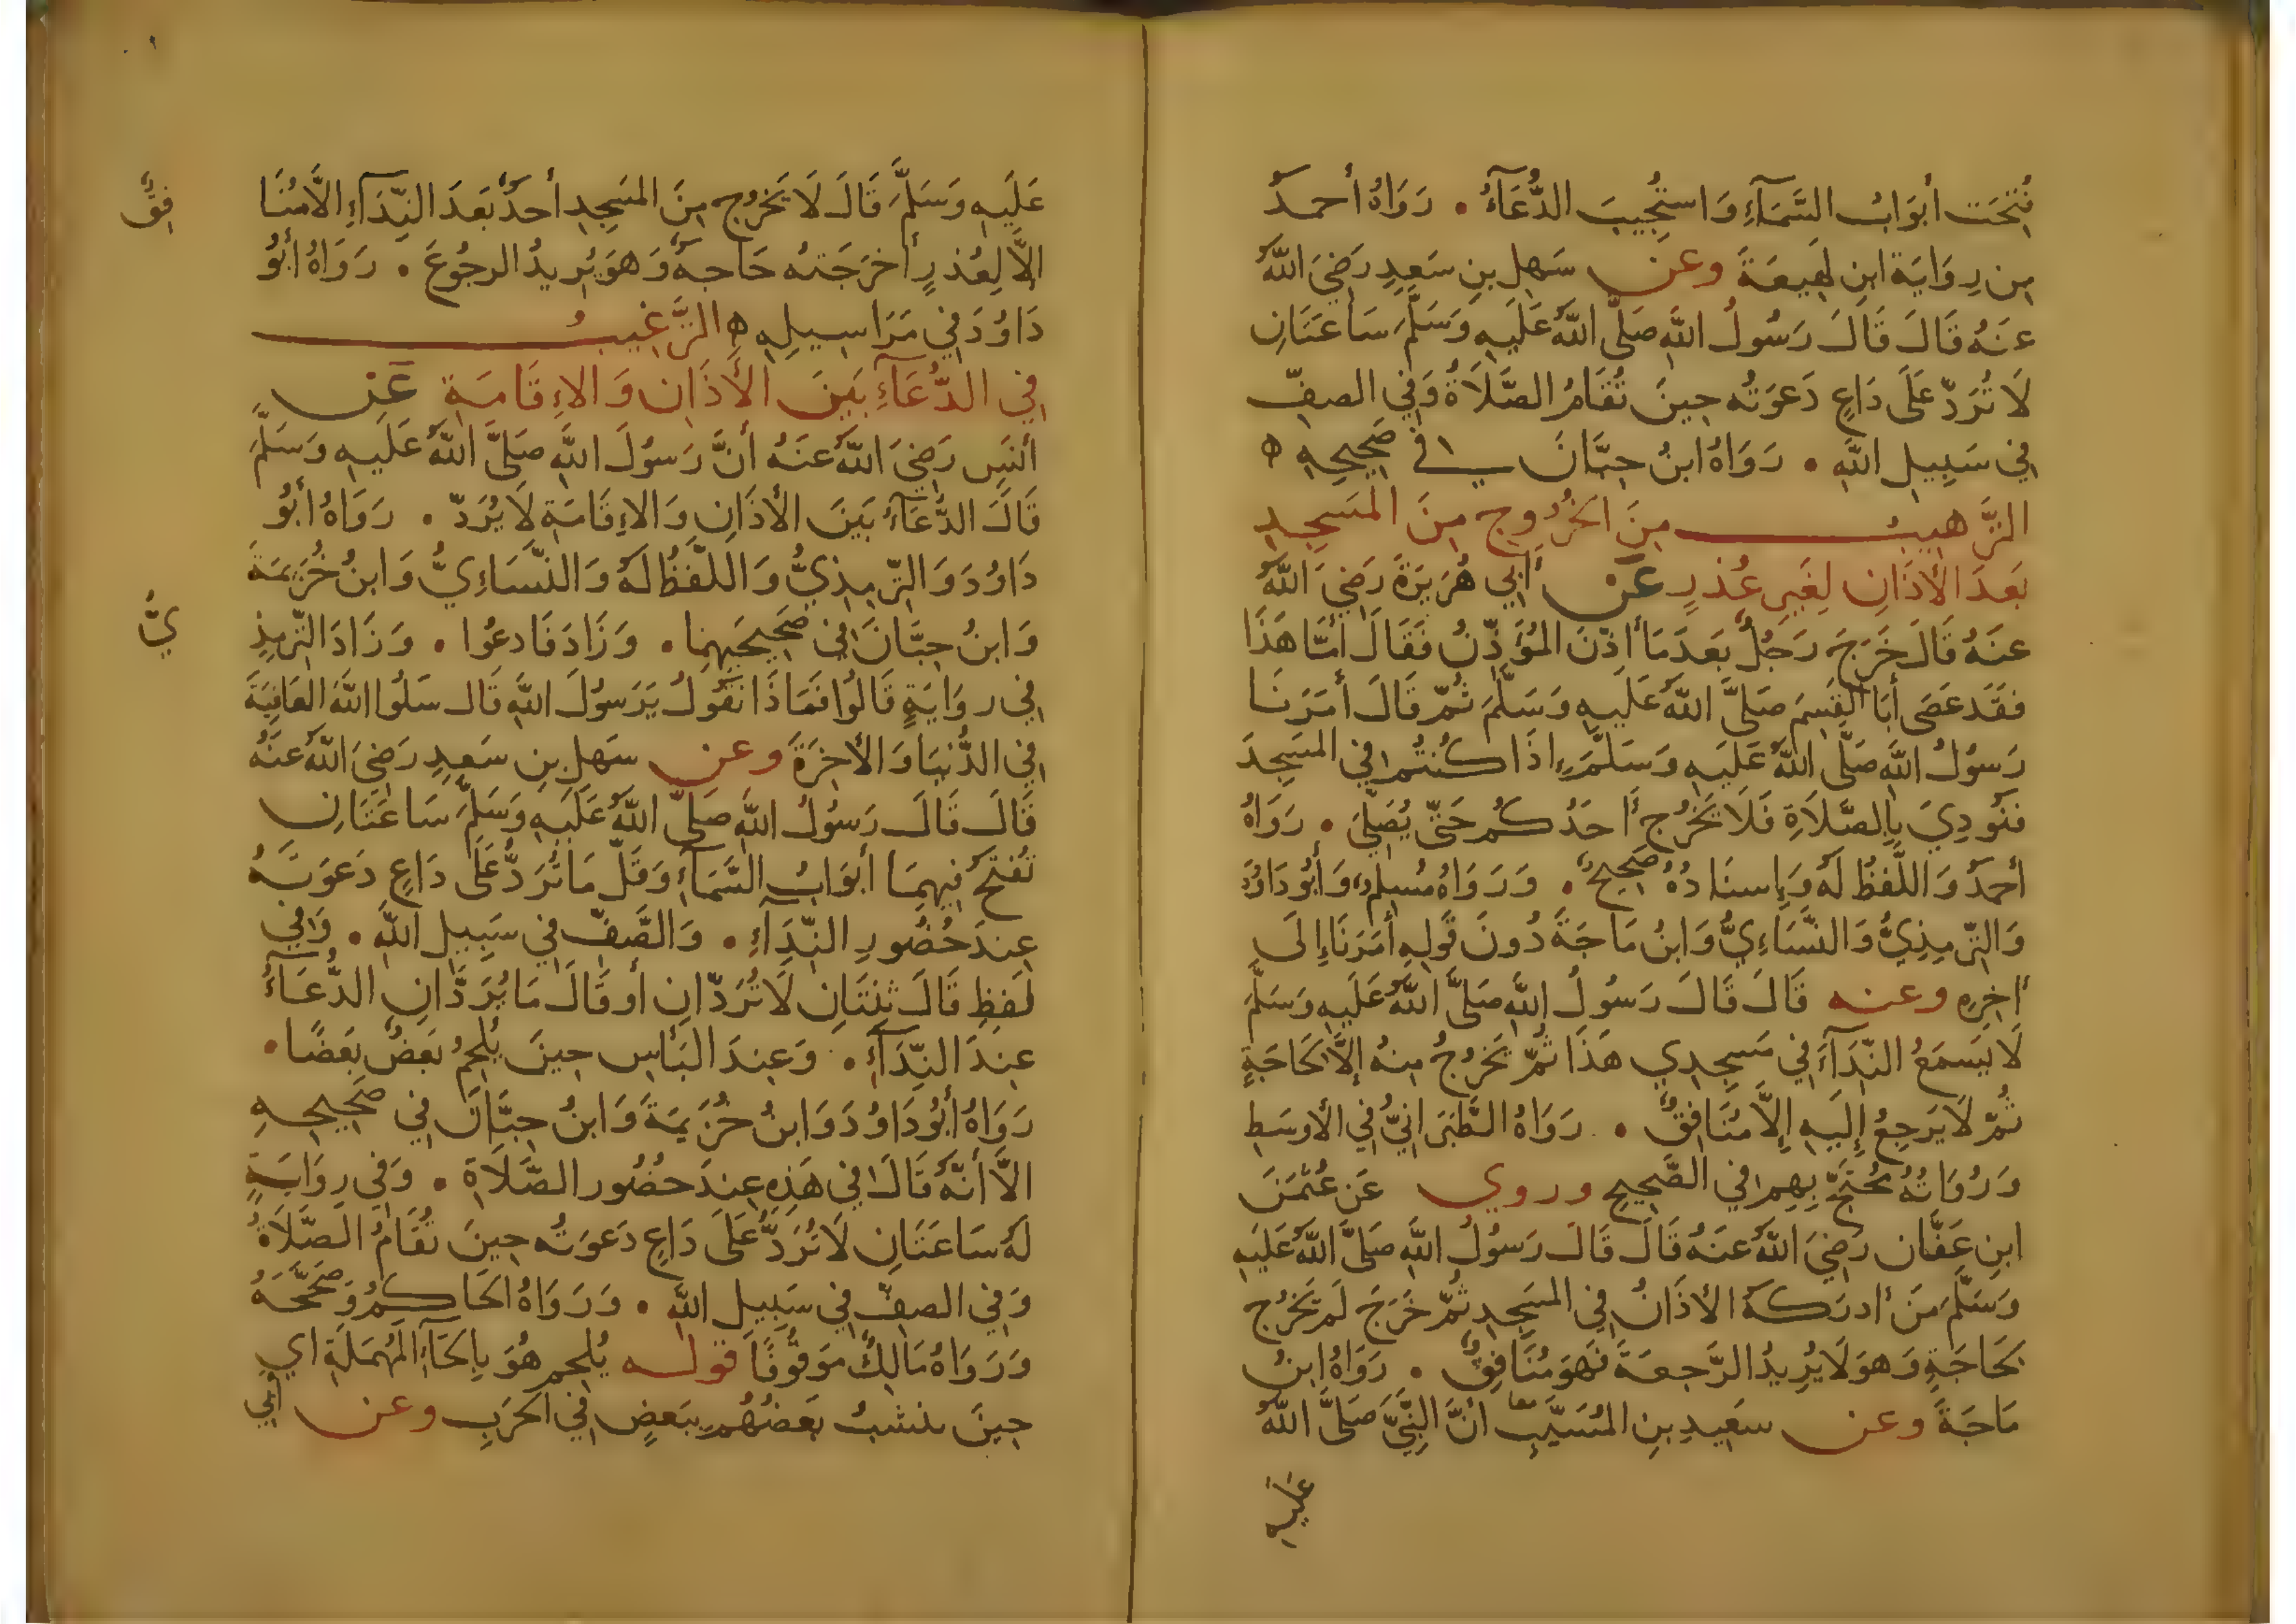 فُتِحَت أبوَابُ السَّمَآءِ وَاستُجِيبَ الدُّعَآءُ . رَوَاهُ أحمدُ
مِن رِوَايَة ابنِ لَهِيعَةَ وعن سَهلِ بنِ سَعدٍ رَضِيَ اللَّهُ
عنهُ قَالَ قَالَ رَسُولُ اللَّهِ صَلَّى اللَّهُ عَلَيهِ وَسَلَّمَ سَاعَتَانِ
لَا تُرَدّ عَلَى دَاعٍ دَعوَتُه حِينَ تُقَامُ الصَّلَاةُ وَفِي الصفِّ
فِي سَبِيلِ اللَّهِ . رَوَاهُ ابنُ حِبَّانَ في صَحِيحِهِ ه
التَّرهيبُ مِنَ الخرُوجِ مِنَ المسَجِدِ
بَعدَ الأَذَانِ لِغَيرِ عُذرٍ عَن أبِي هُرَيرَةَ رَضِيَ اللَّهُ
عنَهُ قَالَ خَرَجَ رَجُلٌ بَعدَمَا أذّنَ المُؤَذِّنُ فَقَالَ أمَّا هَذَا
فقَدَ عَصَى أبَا القَسِمَ صَلَّى اللَّهُ عَلَيهِ وَسَلَّمَ ثُمَّ قَالَ أمَرَنَا
رَسُولُ اللَّهِ صَلَّى اللَّهُ عَلَيهِ وَسَلَّمَ إذَا كُنتُم في المسَجِدَ
فنُودِيَ بِالصَّلَاةِ فَلَا يَخرُج أحَدُكُم حَتَّى يُصَلِّيَ . رَوَاهُ
أحمدُ وَاللَّفظُ لَهُ وَإِسنَادُهُ صَحِيحٌ . وَرَوَاهُ مُسلِمٌ وَأبُو دَاوُدَ
وَالتِّرمِذِيُّ وَالنَّسَاءِيُّ وَابنُ مَاجَةَ دُونَ قَولِهِ أمَرَنَا إلَى
أخِرِهِ وعنه قَالَ قَالَ رَسُولُ اللَّهِ صَلَّى اللَّهُ عَلَيهِ وَسَلَّمَ
لَا يَسَمَعُ النِّدَآءَ فِي مَسَجِدِي هَذَا ثُمَّ يَخرُجُ مِنهُ إلَّا لحَاجَةٍ
ثُمَّ لَا يَرجِعُ إلَيهِ إلَّا مُنَافِقٌ . رَوَاهُ الطَّبَرَانِيُّ فِي الأوسَطِ
وَرُوَاتُهُ مُحتَجٌّ بِهِم فِي الصَّحِيحِ وروي عَن عُثمَنَ
ابنِ عَفَّان رَضِيَ اللَّهُ عَنَهُ قَالَ قَالَ رَسُولُ اللَّهِ صَلَّى اللَّهُ عَلَيهِ
وَسَلَّمَ مَن أدرَكَهُ الأذَانُ فِي المسَجِدِ ثُمَّ خَرَجَ لَم يَخرُج
لحَاجَةٍ وَهوَ لَا يُرِيدُ الرَّجعَةَ فهَوَ مُنَافِقٌ . رَوَاهُ ابنُ
مَاجَةَ وعن سعَيدِ بنِ المُسَيَّبِ معا أنَّ النَّبِيَّ صَلَّى اللَّهُ
عليه
عَلَيهِ وَسَلَّمَ قَالَ لَا يَخرُج مِنَ المسَجِدِ أحَدٌ بَعدَ النِّدَآءِ إلَّا مُنَا
فِقٌ
إلَّا لِعُذرٍ أخرَجَتهُ حَاجةٌ وَهوَ يُرِيدُ الرجُوعَ . رَوَاهُ أبُو
دَاوُدَ فِي مَرَاسِيلِهِ ه التَّرغِيبُ
فِي الدُّعَآءِ بَينَ الأَذَانِ وَالإِقَامَةِ عَن
أنَسٍ رَضِيَ اللَّهُ عَنهُ أنَّ رَسُولَ اللَّهِ صَلَّى اللَّهُ عَلَيهِ وَسَلَّمَ
قَالَ الدُّعَآءُ بَينَ الأذَانِ وَالإِقَامَةِ لَا يُرَدّ . رَوَاهُ أبُو
دَاوُدَ وَالتِّرمِذِيُّ وَاللَّفظُ لَهُ وَالنَّسَاءِيُّ وَابنُ خُزَيمَةَ
وَابنُ حِبَّانَ فِي صَحِيحَيهِمَا . وَزَادَ فَادعُوا . وَزَادَ التِّرمِذِ
يُّ
فِي روَايَةٍ قَالُوا فمَاذَا نَقُولُ يَرَسُولَ اللَّهِ قَال سَلُوا اللَّهَ العَافِيَةَ
فِي الدُّنيَا وَالأخِرَةَ وعن سَهلِ بنِ سَعدٍ رَضِيَ اللَّهُ عَنَهُ
قَالَ قَالَ رَسُولُ اللَّهِ صَلَّى اللَّهُ عَلَيهِ وَسَلَّمَ سَاعَتَانِ
تُفتَحُ فِيهِمَا أبوَابُ السَّمَآءِ وَقَلَّ مَا تُرَدُّ عَلَى دَاعٍ دَعوَتَهُ
عِندَ حُضُورِ النِّدَآءِ . وَالصَّفِّ فِي سَبِيلِ اللَّهِ . وَفِي
لَفظٍ قَالَ ثِنتَانِ لَا تُرَدّانِ أو قَالَ مَا يُرَدَّانِ الدُّعَآءُ
عِندَ النِّدَآءِ . وَعِندَ البَأسِ حِينَ يُلحِمُ بَعضٌ بَعضًا .
رَوَاهُ أبُو دَاوُدَ وَابنُ خُزَيمَةَ وَابنُ حِبَّانَ فِي صَحِيحِهِ
إلَّا أنَّهُ قَالَ فِي هَذِهِ عِندَ حُضُورِ الصَّلَاةِ . وَفِي رِوَايَةٍ
لَهُ سَاعَتَانِ لَا تُرَدُّ عَلَى دَاعٍ دَعوَتُه حِينَ تُقَامُ الصَّلَاةُ
وَفِي الصفِّ فِي سَبِيلِ اللَّهِ . وَرَوَاهُ الحَاكِمُ وَصَحَّحَهُ
وَرَوَاهُ مَالِكٌ مَوقُوفًا قوله يُلحِم هُوَ بِالحَآءِ المُهمَلَةِ اي
حِينَ ينشبُ بَعَضُهُم بِبَعضٍ فِي الحَربِ وعن أبي